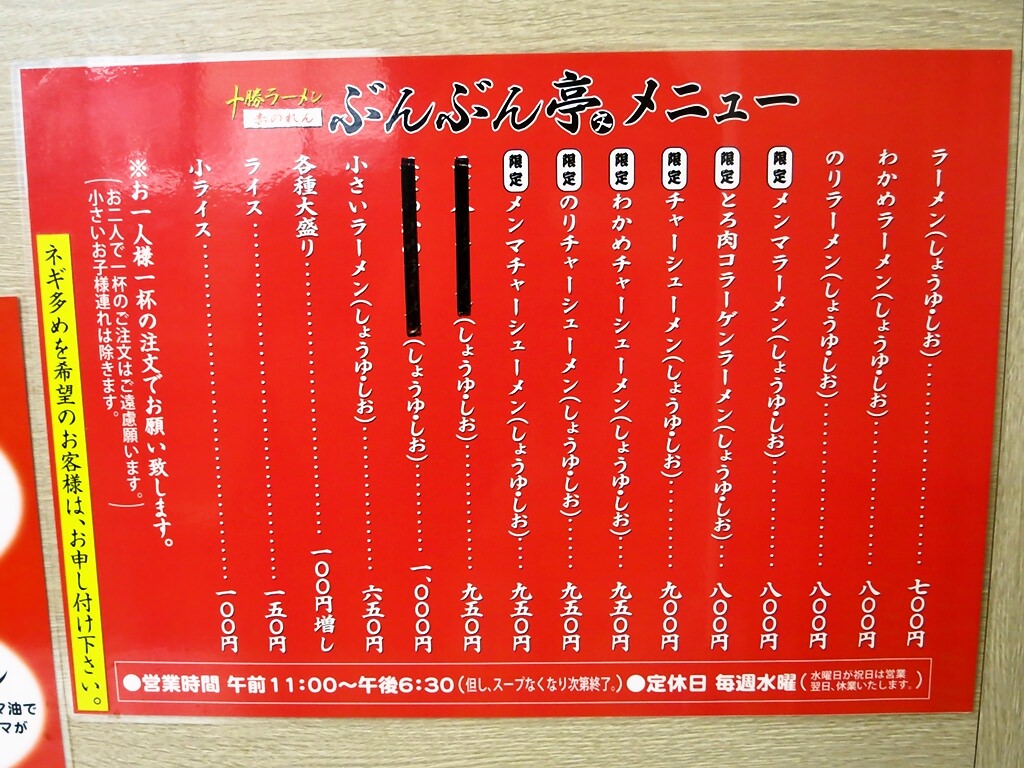 十勝ラーメン
赤のれん
ぶんぶん亭之メニュー
ラーメン(しょうゆ・しお)……………………七〇〇円
わかめラーメン(しょうゆ・しお)……………………八〇〇円
のりラーメン(しょうゆ・しお)……………………八〇〇円
限定 メンマラーメン(しょうゆ・しお)……………………八〇〇円
限定 とろ肉コラーゲンラーメン(しょうゆ・しお)……八〇〇円
限定 チャーシューメン(しょうゆ・しお)……………九〇〇円
限定 わかめチャーシューメン(しょうゆ・しお)……九五〇円
限定 のりチャーシューメン(しょうゆ・しお)……九五〇円
限定 メンマチャーシューメン(しょうゆ・しお)……九五〇円
(しょうゆ・しお)……………………九五〇円
(しょうゆ・しお)……………一、〇〇〇円
小さいラーメン(しょうゆ・しお)……………………六五〇円
各種大盛り……………………一〇〇円増し
ライス……………………一五〇円
小ライス……………………一〇〇円
※お一人様一杯の注文でお願い致します。
(お二人で一杯のご注文はご遠慮願います。
小さいお子様連れは除きます。)
ネギ多めを希望のお客様は、お申し付け下さい。
●営業時間 午前11:00～午後6:30(但し、スープなくなり次第終了。)●定休日 毎週水曜(水曜日が祝日は営業
翌日、休業いたします。)
マ油で
マが